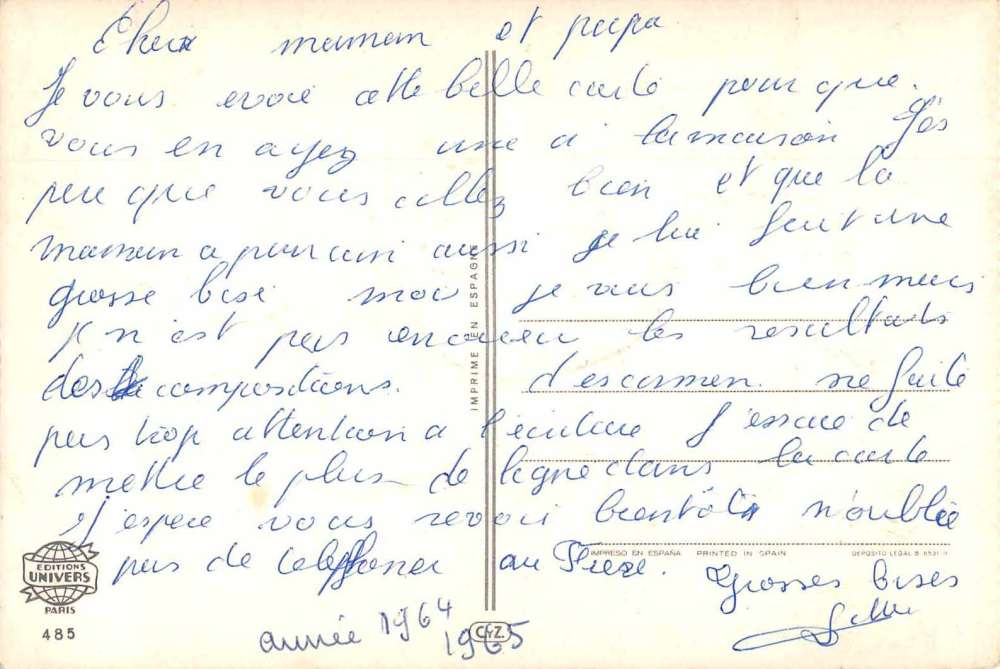 Cher maman et papa
Je vous evoie cette belle carte pour que
vous en ayez une a la maison J'es
pere que vous allez bien et que la
maman a aussi je lui fait une
grosse bise moi je vais bien mais
je n'est pas encore eu les resultats
des compositions. d'examen. ne faite
pas trop attention a l'ecriture J'essaie de
mettre le plus de ligne dans la carte
J'espere vous revoir bientôt n'oublie
pas de telefoner au
Grosses bises
année 1964
1965
IMPRIME EN ESPAGNE
IMPRESO EN ESPAÑA PRINTED IN SPAIN DEPOSITO LEGAL B.
EDITIONS
UNIVERS
PARIS
485
CyZ